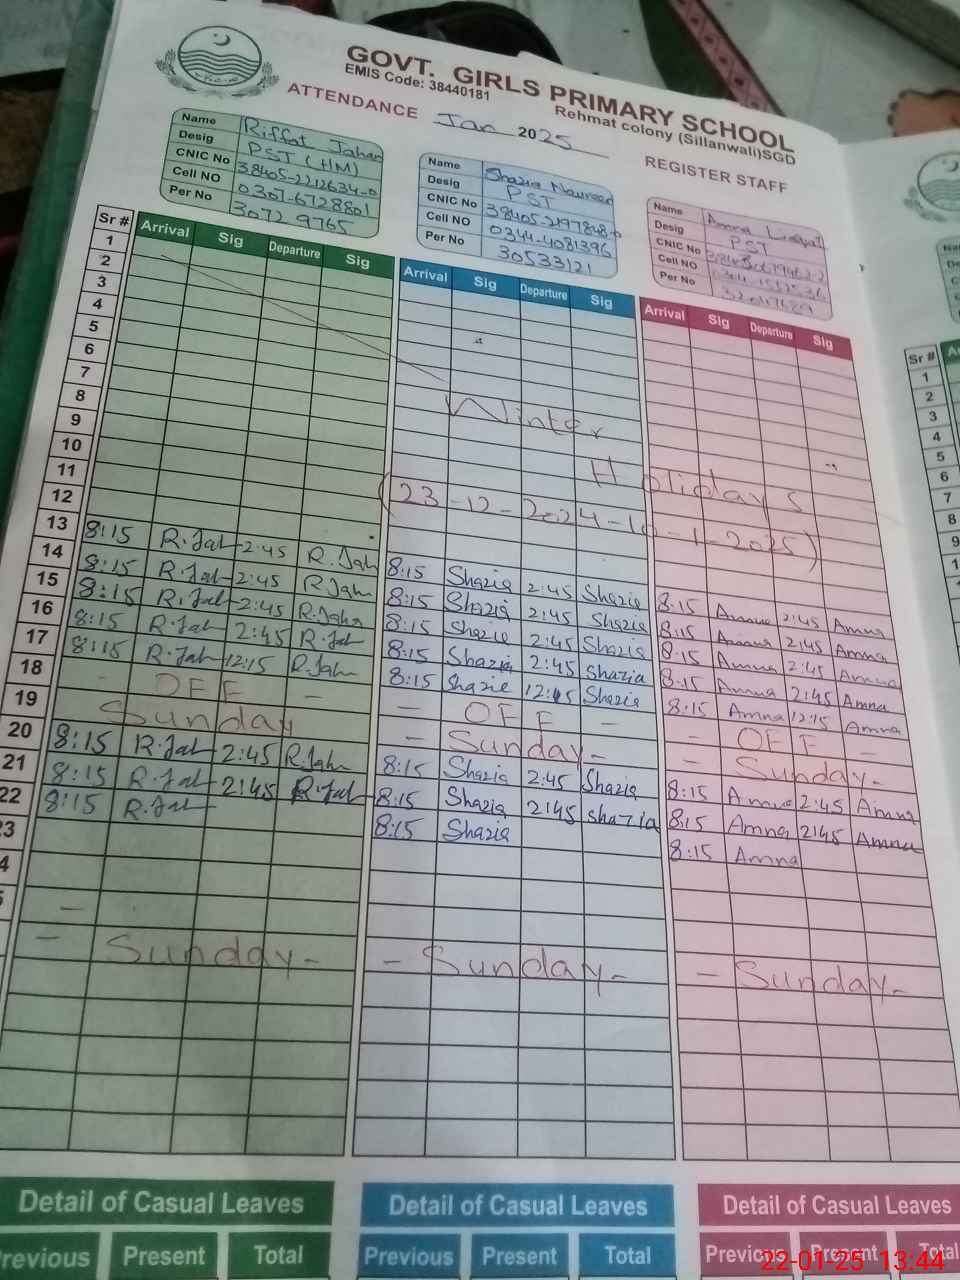 GOVT. GIRLS PRIMARY SCHOOL
EMIS Code: 38440181
Rehmat colony (Sillanwali)SGD
ATTENDANCE Jan 2025 REGISTER STAFF
Name Riffat Jahan
Desig PST (HM)
CNIC No 38405-2212634-0
Cell NO 0301-6728801
Per No 30729765
Name Shazia
Desig PST
CNIC No
Cell NO 0344-4081396
Per No 30533121
Name Amna Liaqat
Desig PST
CNIC No
Cell NO
Per No
Sr # Arrival Sig Departure Sig Arrival Sig Departure Sig Arrival Sig Departure Sig
1
2
3
4
5
6
7
8
9
10
11
12
Winter
Holidays
(23-12-2024-10-1-2025)
13 8:15 R.Jah 2:45 R.Jah 8:15 Shazia 2:45 Shazia 8:15 Amna 2:45 Amna
14 8:15 R.Jah 2:45 R.Jah 8:15 Shazia 2:45 Shazia 8:15 Amna 2:45 Amna
15 8:15 R.Jah 2:45 R.Jahn 8:15 Shazia 2:45 Shazia 8:15 Amna 2:45 Amna
16 8:15 R.Jah 2:45 R.Jah 8:15 Shazia 2:45 Shazia 8:15 Amna 2:45 Amna
17 8:15 R.Jah 12:15 R.Jah 8:15 Shazia 12:15 Shazia 8:15 Amna 12:15 Amna
18 - OFF - - OFF - - OFF -
19 Sunday - Sunday - - Sunday -
20 8:15 R.Jah 2:45 R.Jah 8:15 Shazia 2:45 Shazia 8:15 Amna 2:45 Amna
21 8:15 R.Jah 2:45 R.Jah 8:15 Shazia 2:45 Shazia 8:15 Amna 2:45 Amna
22 8:15 R.Jah 8:15 Shazia 8:15 Amna
23
4
5
- Sunday - - Sunday - - Sunday -
Detail of Casual Leaves Detail of Casual Leaves Detail of Casual Leaves
Previous Present Total Previous Present Total Previous Present Total
Sr #
1
2
3
4
5
6
7
8
9
22-01-25 13:44